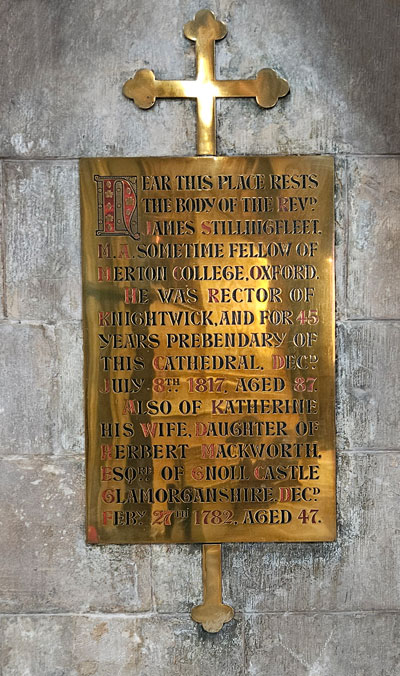 NEAR THIS PLACE RESTS
THE BODY OF THE REVD.
JAMES STILLINGFLEET.
M.A. SOMETIME FELLOW OF
MERTON COLLEGE, OXFORD.
HE WAS RECTOR OF
KNIGHTWICK, AND FOR 45
YEARS PREBENDARY OF
THIS CATHEDRAL. DECD.
JULY 8TH 1817, AGED 87
ALSO OF KATHERINE
HIS WIFE, DAUGHTER OF
HERBERT MACKWORTH,
ESQRE. OF GNOLL CASTLE
GLAMORGANSHIRE, DECD.
FEBY. 27TH 1782, AGED 47.